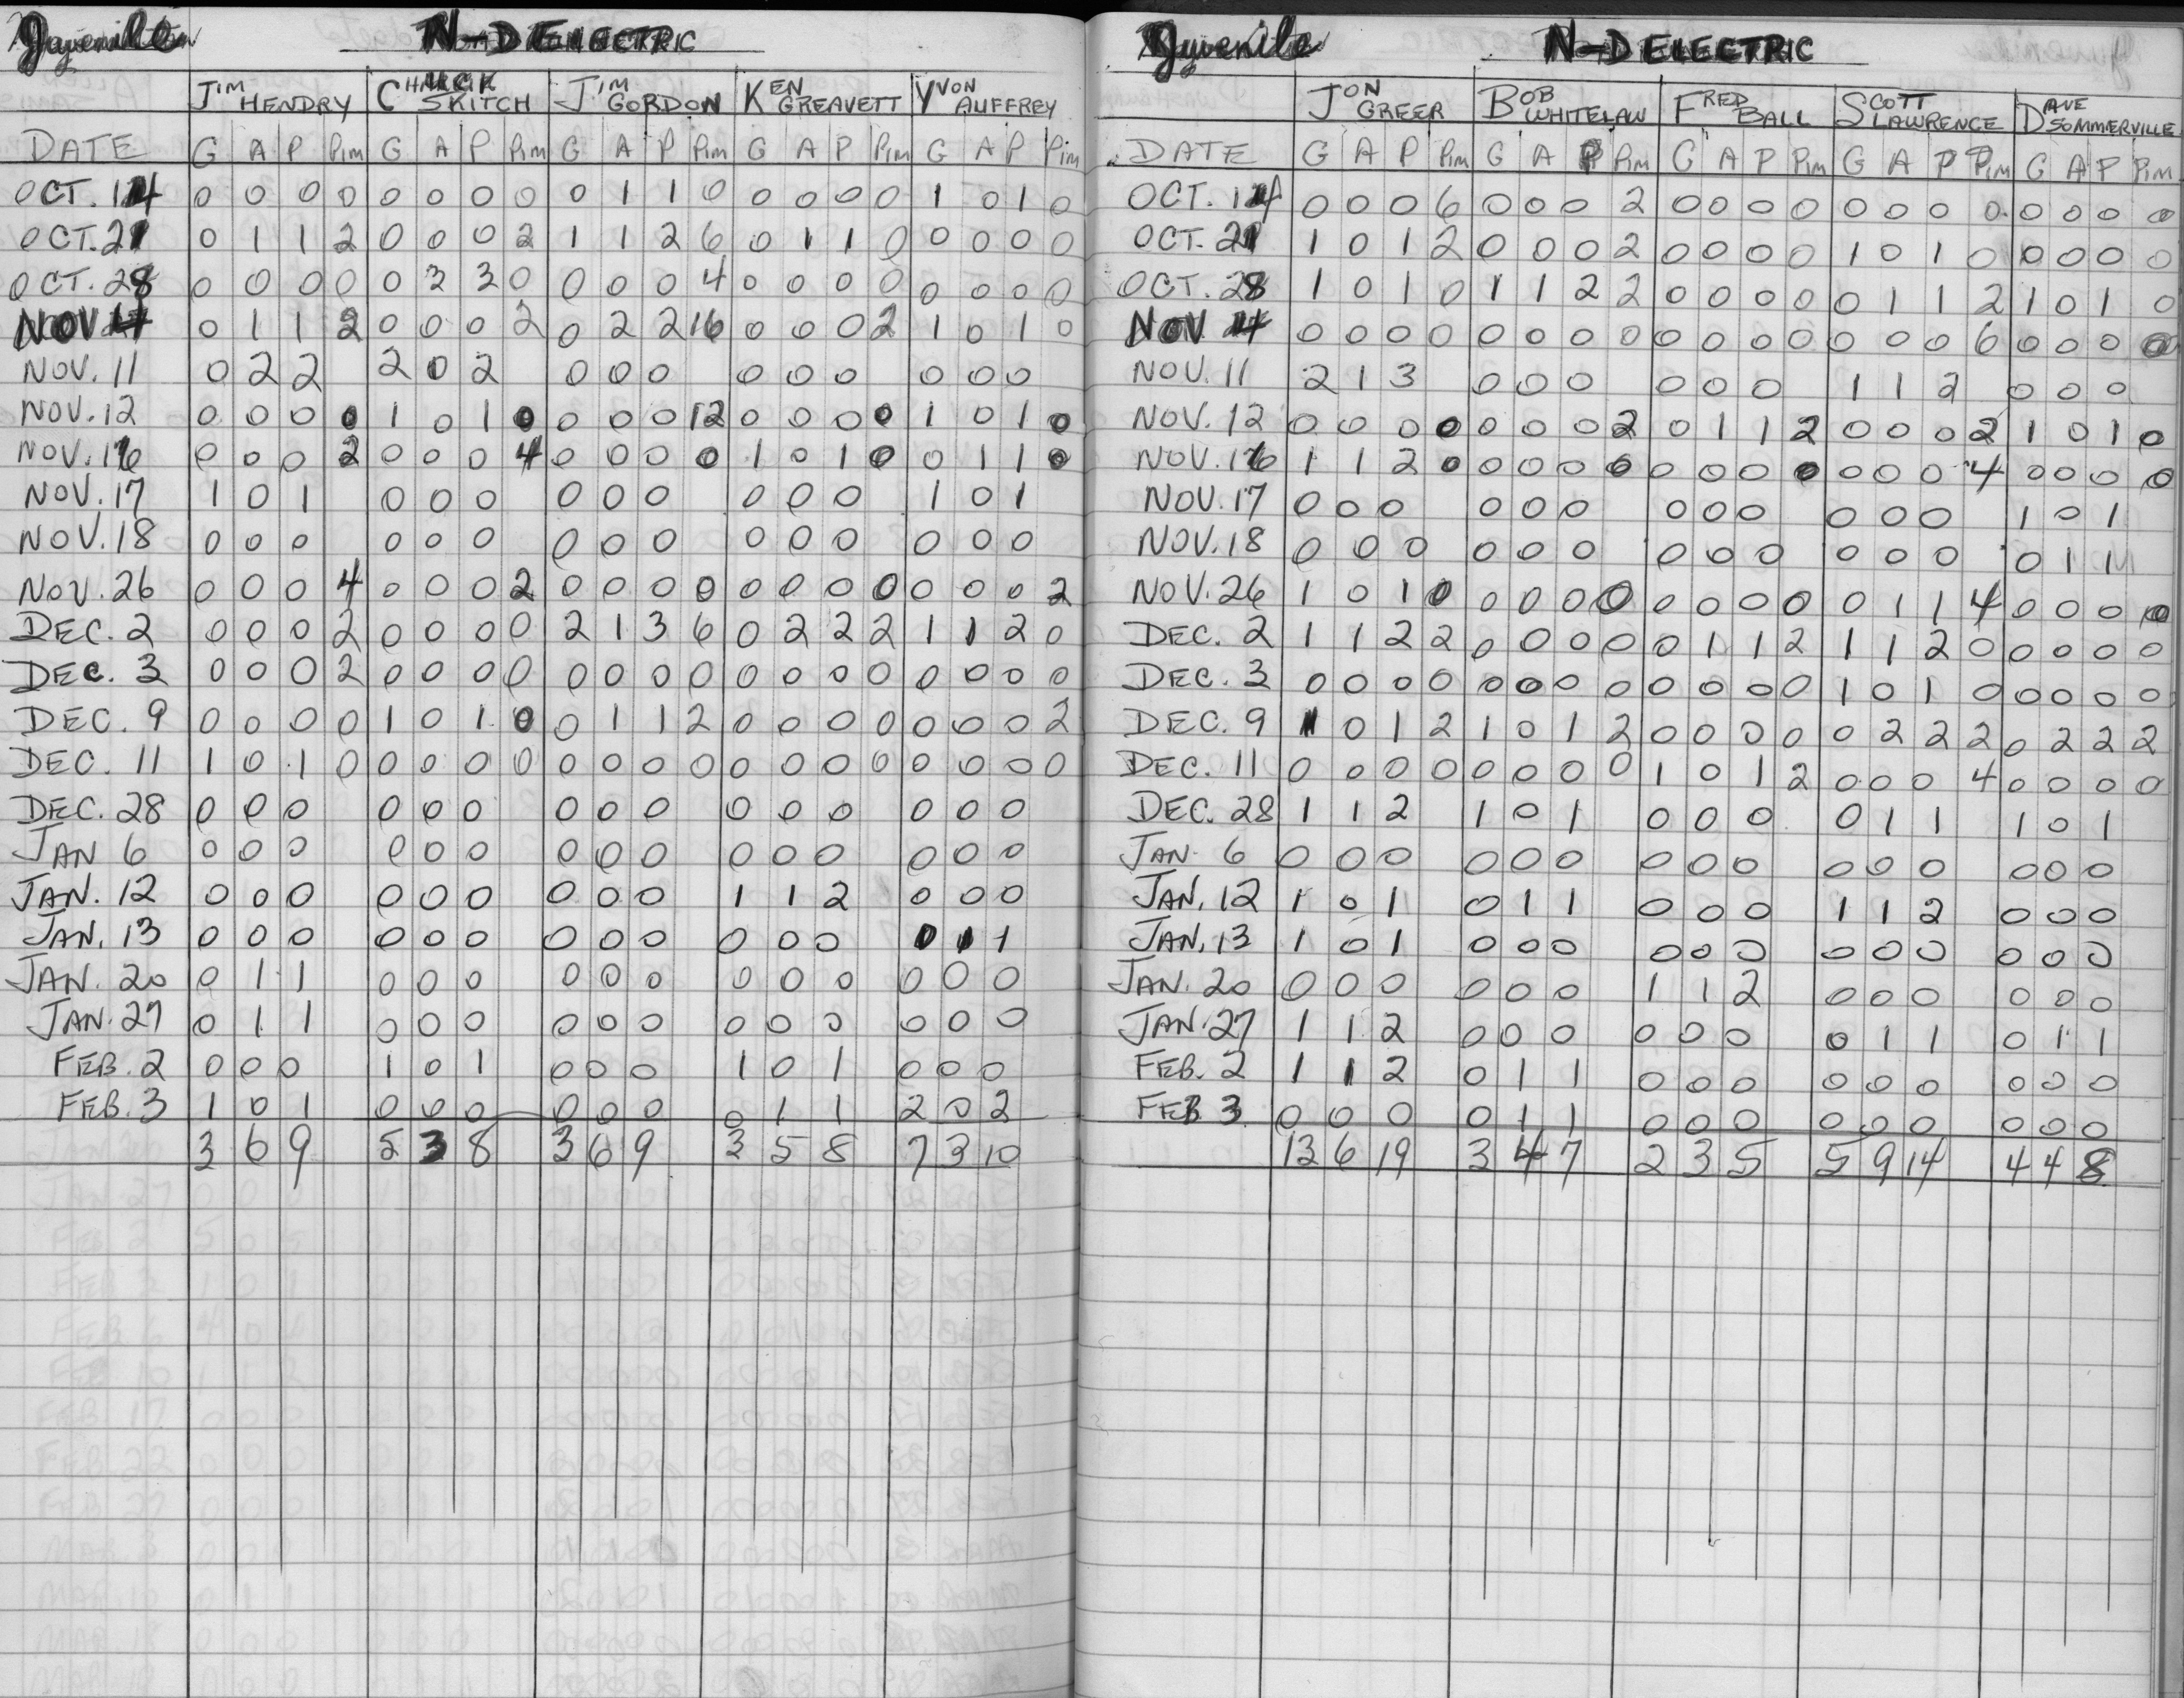 Juvenile N-D ELECTRIC
JIM HENDRY CHUCK SKITCH JIM GORDON KEN GREAVETT YVON AUFFREY
DATE G A P PIM G A P PIM G A P PIM G A P PIM G A P PIM
OCT. 14 0 0 0 0 0 0 0 0 0 1 1 0 0 0 0 0 1 0 1 0
OCT. 21 0 1 1 2 0 0 0 2 1 1 2 6 0 1 1 0 0 0 0 0
OCT. 28 0 0 0 0 0 3 3 0 0 0 0 4 0 0 0 0 0 0 0 0
NOV 4 0 1 1 2 0 0 0 2 0 2 2 16 0 0 0 2 1 0 1 0
NOV. 11 0 2 2 2 0 2 0 0 0 0 0 0 0 0 0
NOV. 12 0 0 0 0 1 0 1 0 0 0 0 12 0 0 0 0 1 0 1 0
NOV. 16 0 0 0 2 0 0 0 4 0 0 0 0 1 0 1 0 0 1 1 0
NOV. 17 1 0 1 0 0 0 0 0 0 0 0 0 1 0 1
NOV. 18 0 0 0 0 0 0 0 0 0 0 0 0 0 0 0
NOV. 26 0 0 0 4 0 0 0 2 0 0 0 0 0 0 0 0 0 0 0 2
DEC. 2 0 0 0 2 0 0 0 0 2 1 3 6 0 2 2 2 1 1 2 0
DEC. 3 0 0 0 2 0 0 0 0 0 0 0 0 0 0 0 0 0 0 0 0
DEC. 9 0 0 0 0 1 0 1 0 0 1 1 2 0 0 0 0 0 0 0 2
DEC. 11 1 0 1 0 0 0 0 0 0 0 0 0 0 0 0 0 0 0 0 0
DEC. 28 0 0 0 0 0 0 0 0 0 0 0 0 0 0 0
JAN 6 0 0 0 0 0 0 0 0 0 0 0 0 0 0 0
JAN. 12 0 0 0 0 0 0 0 0 0 1 1 2 0 0 0
JAN. 13 0 0 0 0 0 0 0 0 0 0 0 0 0 1 1
JAN. 20 0 1 1 0 0 0 0 0 0 0 0 0 0 0 0
JAN. 27 0 1 1 0 0 0 0 0 0 0 0 0 0 0 0
FEB. 2 0 0 0 1 0 1 0 0 0 1 0 1 0 0 0
FEB. 3 1 0 1 0 0 0 0 0 0 0 1 1 2 0 2
3 6 9 5 3 8 3 6 9 3 5 8 7 3 10
Juvenile N-D ELECTRIC
JON GREER BOB WHITELAW FRED BALL SCOTT LAWRENCE DAVE SOMMERVILLE
DATE G A P PIM G A P PIM G A P PIM G A P PIM G A P PIM
OCT. 14 0 0 0 6 0 0 0 2 0 0 0 0 0 0 0 0 0 0 0 0
OCT. 21 1 0 1 2 0 0 0 2 0 0 0 0 1 0 1 0 0 0 0 0
OCT. 28 1 0 1 0 1 1 2 2 0 0 0 0 0 1 1 2 1 0 1 0
NOV 4 0 0 0 0 0 0 0 0 0 0 0 0 0 0 0 6 0 0 0 0
NOV. 11 2 1 3 0 0 0 0 0 0 1 1 2 0 0 0
NOV. 12 0 0 0 0 0 0 0 2 0 1 1 2 0 0 0 2 1 0 1 0
NOV. 16 1 1 2 0 0 0 0 6 0 0 0 0 0 0 0 4 0 0 0 0
NOV. 17 0 0 0 0 0 0 0 0 0 0 0 0 1 0 1
NOV. 18 0 0 0 0 0 0 0 0 0 0 0 0 0 1 1
NOV. 26 1 0 1 0 0 0 0 0 0 0 0 0 0 1 1 4 0 0 0 0
DEC. 2 1 1 2 2 0 0 0 0 0 1 1 2 1 1 2 0 0 0 0 0
DEC. 3 0 0 0 0 0 0 0 0 0 0 0 0 1 0 1 0 0 0 0 0
DEC. 9 1 0 1 2 1 0 1 2 0 0 0 0 0 2 2 2 0 2 2 2
DEC. 11 0 0 0 0 0 0 0 0 1 0 1 2 0 0 0 4 0 0 0 0
DEC. 28 1 1 2 1 0 1 0 0 0 0 1 1 1 0 1
JAN. 6 0 0 0 0 0 0 0 0 0 0 0 0 0 0 0
JAN. 12 1 0 1 0 1 1 0 0 0 1 1 2 0 0 0
JAN. 13 1 0 1 0 0 0 0 0 0 0 0 0 0 0 0
JAN. 20 0 0 0 0 0 0 1 1 2 0 0 0 0 0 0
JAN. 27 1 1 2 0 0 0 0 0 0 0 1 1 0 1 1
FEB. 2 1 1 2 0 1 1 0 0 0 0 0 0 0 0 0
FEB 3 0 0 0 0 1 1 0 0 0 0 0 0 0 0 0
13 6 19 3 4 7 2 3 5 5 9 14 4 4 8